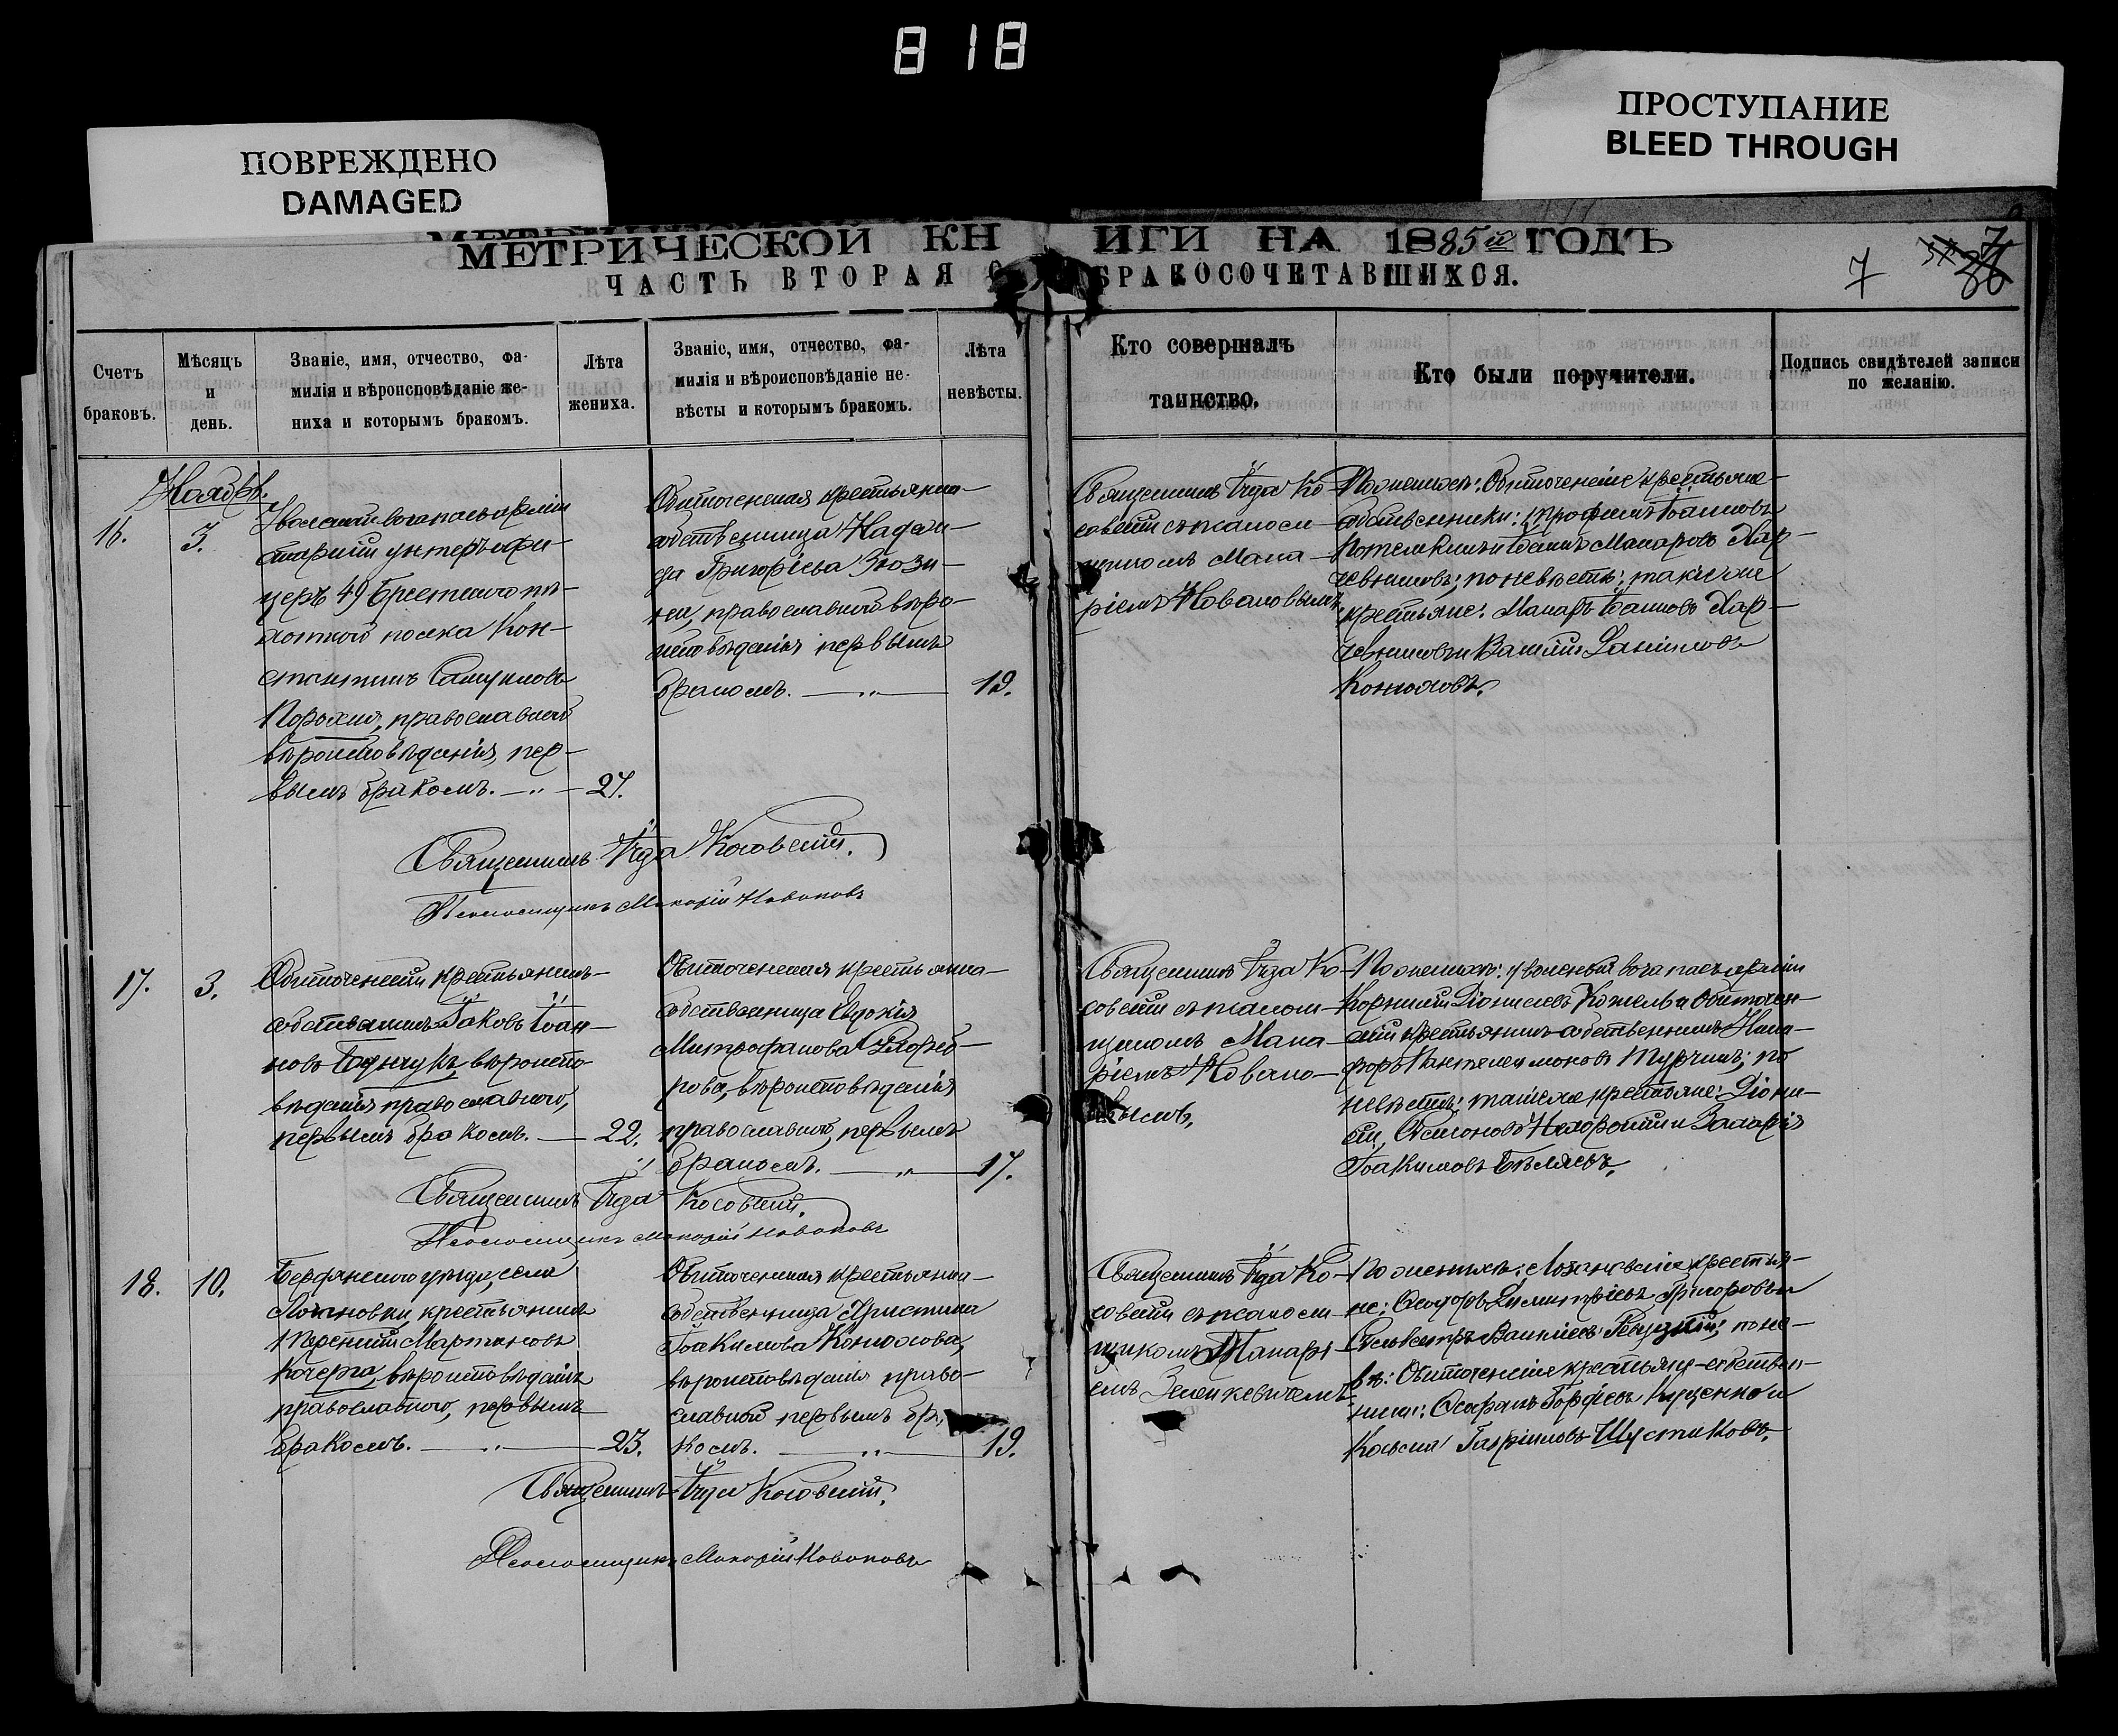 818
ПОВРЕЖДЕНО
DAMAGED
ПРОСТУПАНИЕ
BLEED THROUGH
МЕТРИЧЕСКОЙ КНИГИ НА 1885й ГОДЪ
ЧАСТЬ ВТОРАЯ О БРАКОСОЧЕТАВШИХСЯ.
7
Счетъ браковъ.
Мѣсяцъ и день.
Званіе, имя, отчество, фа-
милія и вѣроисповѣданіе же-
ниха и которымъ бракомъ.
Лѣта жениха.
Званіе, имя, отчество, фа-
милія и вѣроисповѣданіе не-
вѣсты и которымъ бракомъ.
Лѣта невѣсты.
Кто совершалъ
таинство.
Кто были поручители.
Подпись свидѣтелей записи
по желанію.
Ноябрь.
16.
3.
Уволенный въ запасъ арміи
старшій унтеръ-офи-
церъ 49 Брестскаго пѣ-
хотнаго полка Кон-
стантинъ Самуиловъ
православнаго
вѣроисповѣданія, пер-
вымъ бракомъ. — „ — 27.
Обиточенская крестьянка-
собственница Надеж-
да Григорьева
православнаго вѣро-
исповѣданія первымъ
бракомъ. — „ — 19.
Священникъ Іуда Ко-
совскій съ псаломщи-
щикомъ Мака-
ріемъ Новаковымъ
По женихѣ: Обиточенскіе крестьяне-
собственники: Трофимъ Іоанновъ
Потемкинъ и Іоаннъ Макаровъ Хар-
чевниковъ; по невѣстѣ: такіе же
крестьяне: Макаръ Іоанновъ Хар-
чевниковъ и Василій Даніиловъ
Конюховъ.
Священникъ Іуда Косовскій.
Псаломщикъ Макарій Новаковъ
17.
3.
Обиточенскій крестьянинъ-
собственникъ Іаковъ Іоан-
новъ вѣроиспо-
вѣданія православнаго,
первымъ бракомъ. — 22.
Обиточенская крестьянка-
собственница Евдокія
Митрофанова
вѣроисповѣданія
православнаго, первымъ
бракомъ. — „ — 17.
Священникъ Іуда Ко-
совскій съ псалом-
щикомъ Мака-
ріемъ Новако-
вымъ.
По женихѣ: уволенный въ запасъ арміи
Корнилій Діонисіевъ и Обиточен-
скій крестьянинъ-собственникъ Ники-
форъ Пантелеимоновъ Турчинъ; по
невѣстѣ: такіе же крестьяне: Діони-
сій Симоновъ и Захарія
Іоакимовъ Бѣляевъ.
Священникъ Іуда Косовскій.
Псаломщикъ Макарій Новаковъ
18.
10.
Бердянскаго уѣзда, села
Лозановки, крестьянинъ
Мартиновъ
Кочерга, вѣроисповѣданія
православнаго, первымъ
бракомъ. — „ — 23.
Обиточенская крестьянка-
собственница Христина
Іоакимова Конюхова,
вѣроисповѣданія право-
славнаго первымъ бра-
комъ. — „ — 19.
Священникъ Іуда Ко-
совскій съ псалом-
щикомъ Макарі-
емъ
По женихѣ: Лозановскіе крестья-
не: Ѳеодоръ Димитріевъ Григоровъ и
Сильвестръ Василіевъ по не-
вѣ: Обиточенскіе крестьяне-собствен-
ники: Гордіевъ Куценко и
Косьма Гавріиловъ Шустиковъ.
Священникъ Іуда Косовскій.
Псаломщикъ Макарій Новаковъ